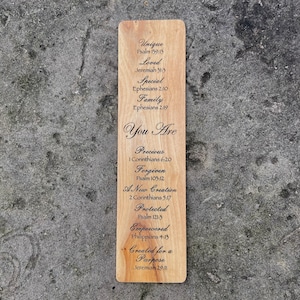 Unique
Psalm 139:13
Loved
Jeremiah 31:3
Special
Ephesians 2:10
Family
Ephesians 2:19
You Are
Precious
1 Corinthians 6:20
Forgiven
Psalm 103:12
A New Creation
2 Corinthians 5:17
Protected
Psalm 121:3
Empowered
Philippians 4:13
Created for a
Purpose
Jeremiah 29:11